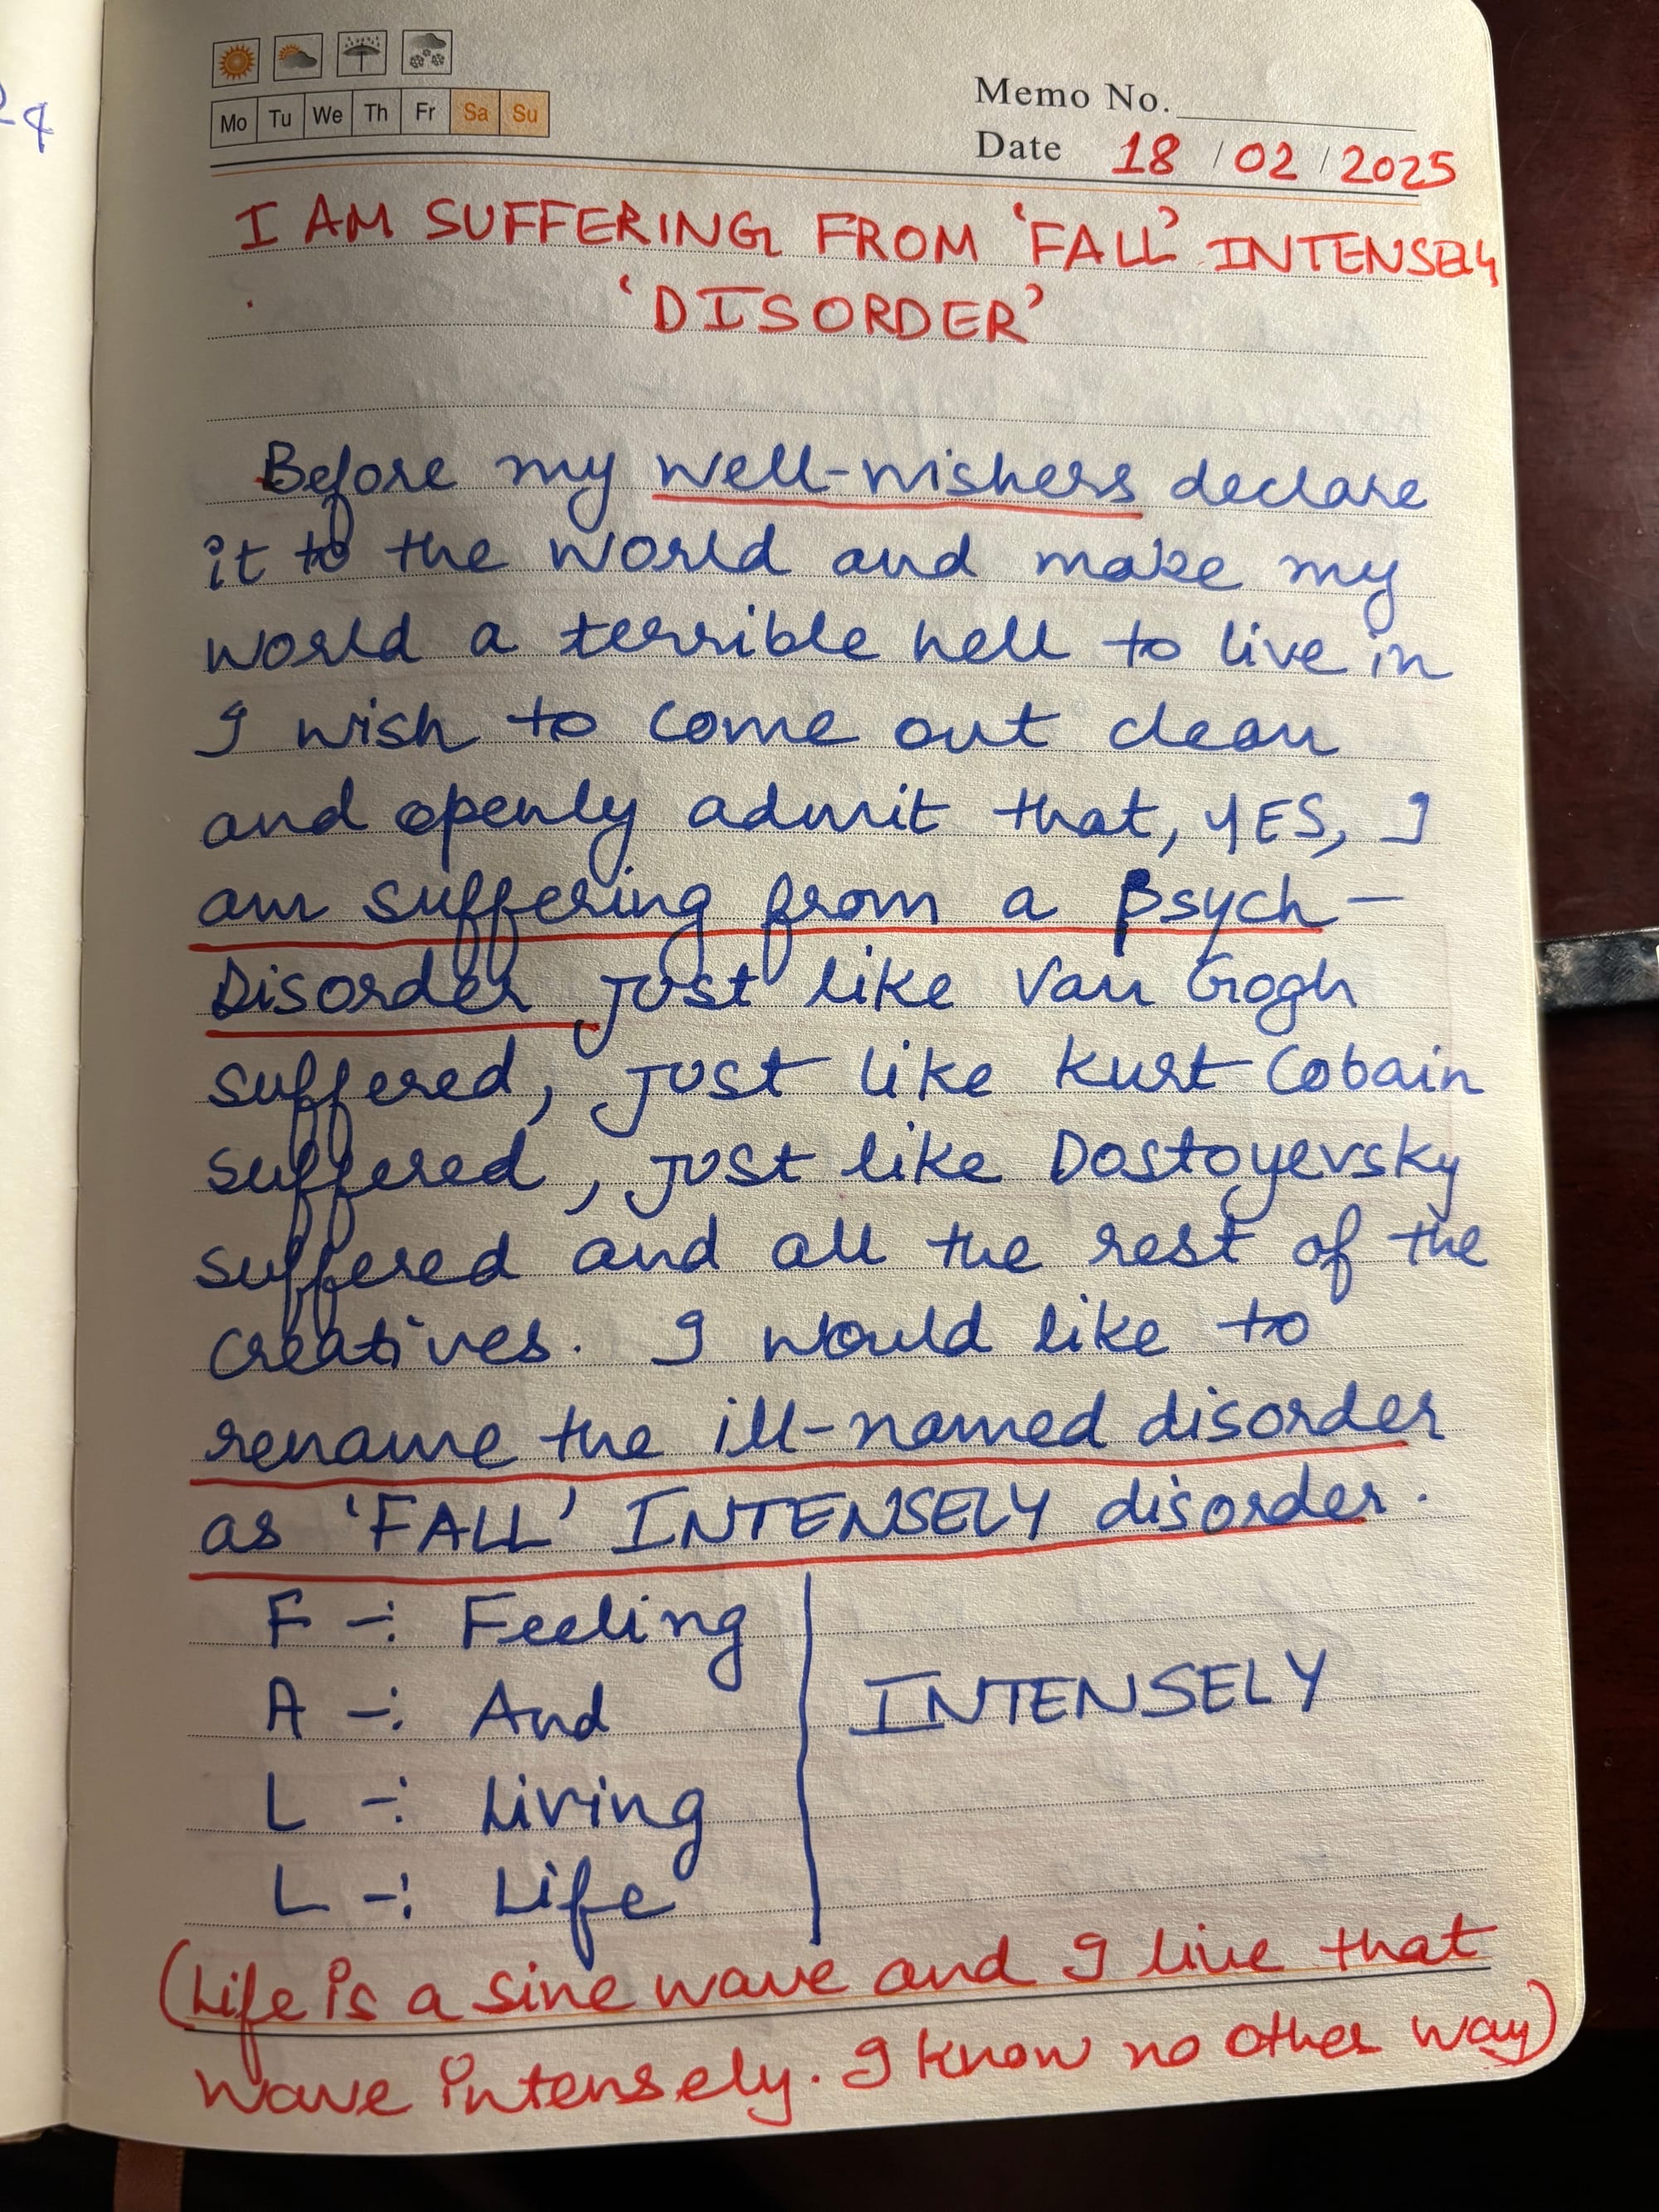 24
Mo Tu We Th Fr Sa Su
Memo No.
Date 18 / 02 / 2025
I AM SUFFERING FROM 'FALL' INTENSELY
'DISORDER'
Before my well-wishers declare
it to the world and make my
world a terrible hell to live in
I wish to come out clean
and openly admit that, YES, I
am suffering from a Psych-
Disorder just like Van Gogh
suffered, just like Kurt Cobain
suffered, just like Dostoyevsky
suffered and all the rest of the
creatives. I would like to
rename the ill-named disorder
as 'FALL' INTENSELY disorder.
F -: Feeling
A -: And
L -: Living
L -: Life
INTENSELY
(Life is a sine wave and I live that
wave intensely. I know no other way)